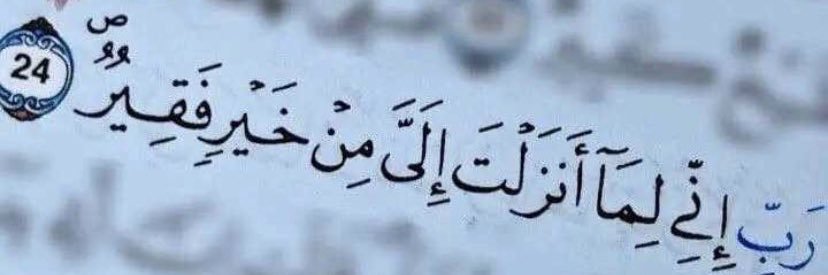 رَبِّ إِنِّي لِمَآ أَنزَلْتَ إِلَىَّ مِنْ خَيْرٍ فَقِيرٌ ۖ 24